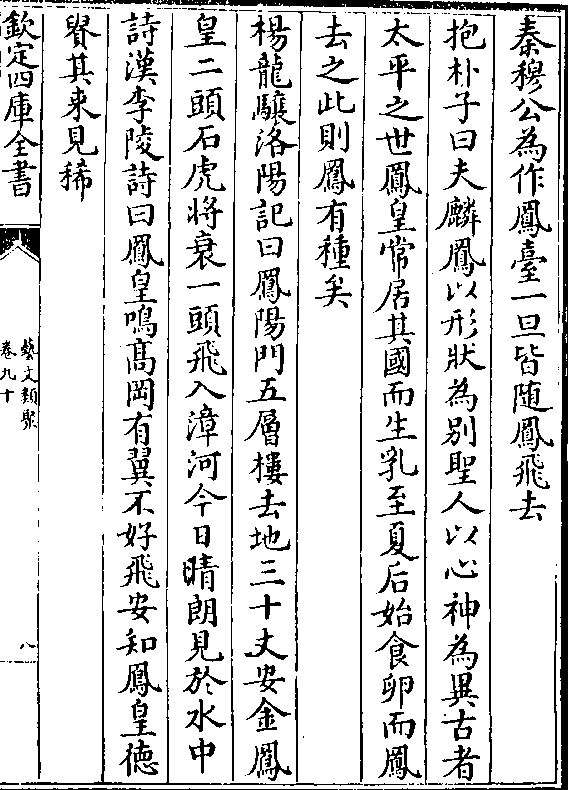 秦穆公為作鳳臺一旦皆随鳳飛去
抱朴子曰夫麟鳳以形狀為別聖人以心神為異古者
太平之世鳳皇常居其國而生乳至夏后始食卵而鳳
去之此則鳳有種矣
楊龍驤洛陽記曰鳳陽門五層樓去地三十丈安金鳳
皇二頭石虎將衰一頭飛入漳河今日晴朗見於水中
詩漢李陵詩曰鳳皇鳴髙岡有翼不好飛安知鳳皇德
貴其来見稀
欽定四庫全書
藝文類聚
卷九十
八